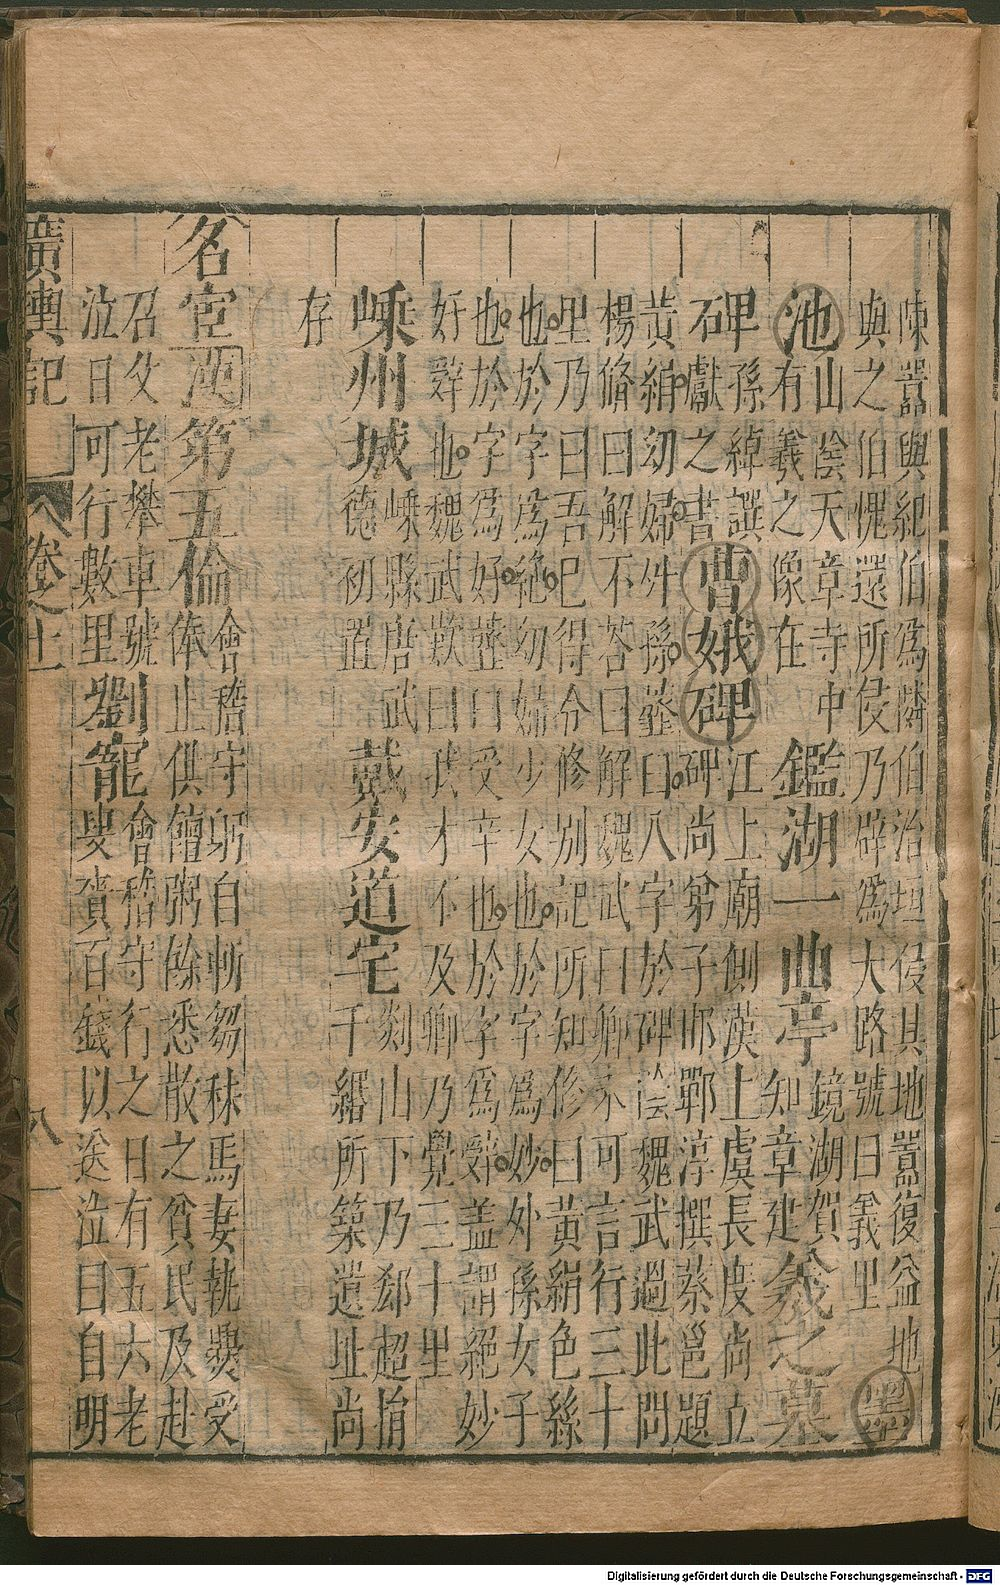 陳囂與紀伯爲隣伯治垣侵其地囂復益地
與之伯愧還所侵乃辟爲大路號曰義里 墨
池 山陰天章寺中
有羲之像在 鑑湖一曲亭 鏡湖賀
知章建 羲之墓
碑 孫綽譔 江上廟側漢上虞長度尚立
碑獻之書 曹娥碑 碑尚弟子邯鄲淳撰蔡邕題
黃絹幼婦外孫虀臼八字於碑陰魏武過此問
楊脩曰解不荅曰解魏武曰卿未可言行三十
里乃曰吾已得令修別記所知修曰黃絹色絲
也於字爲絕幼婦少女也於字爲妙外孫女子
也於字爲好虀臼受辛也於字爲辭蓋謂絕妙
好辭也魏武歎曰我才不及卿乃覺三十里
嵊州城 嵊縣唐武
德初置 戴安道宅 剡山下乃郄超捐
千緡所築遺址尚
存
名宦 漢 第五倫 會稽守躬自斬芻秣馬妻執爨受
俸止供饘粥餘悉散之貧民及赴
召父老攀車號
泣日可行數里 劉寵 會稽守行之日有五六老
叟賫百錢以送泣曰自明
廣輿記 卷之十一 八
Digitalisierung gefördert durch die Deutsche Forschungsgemeinschaft - DFG